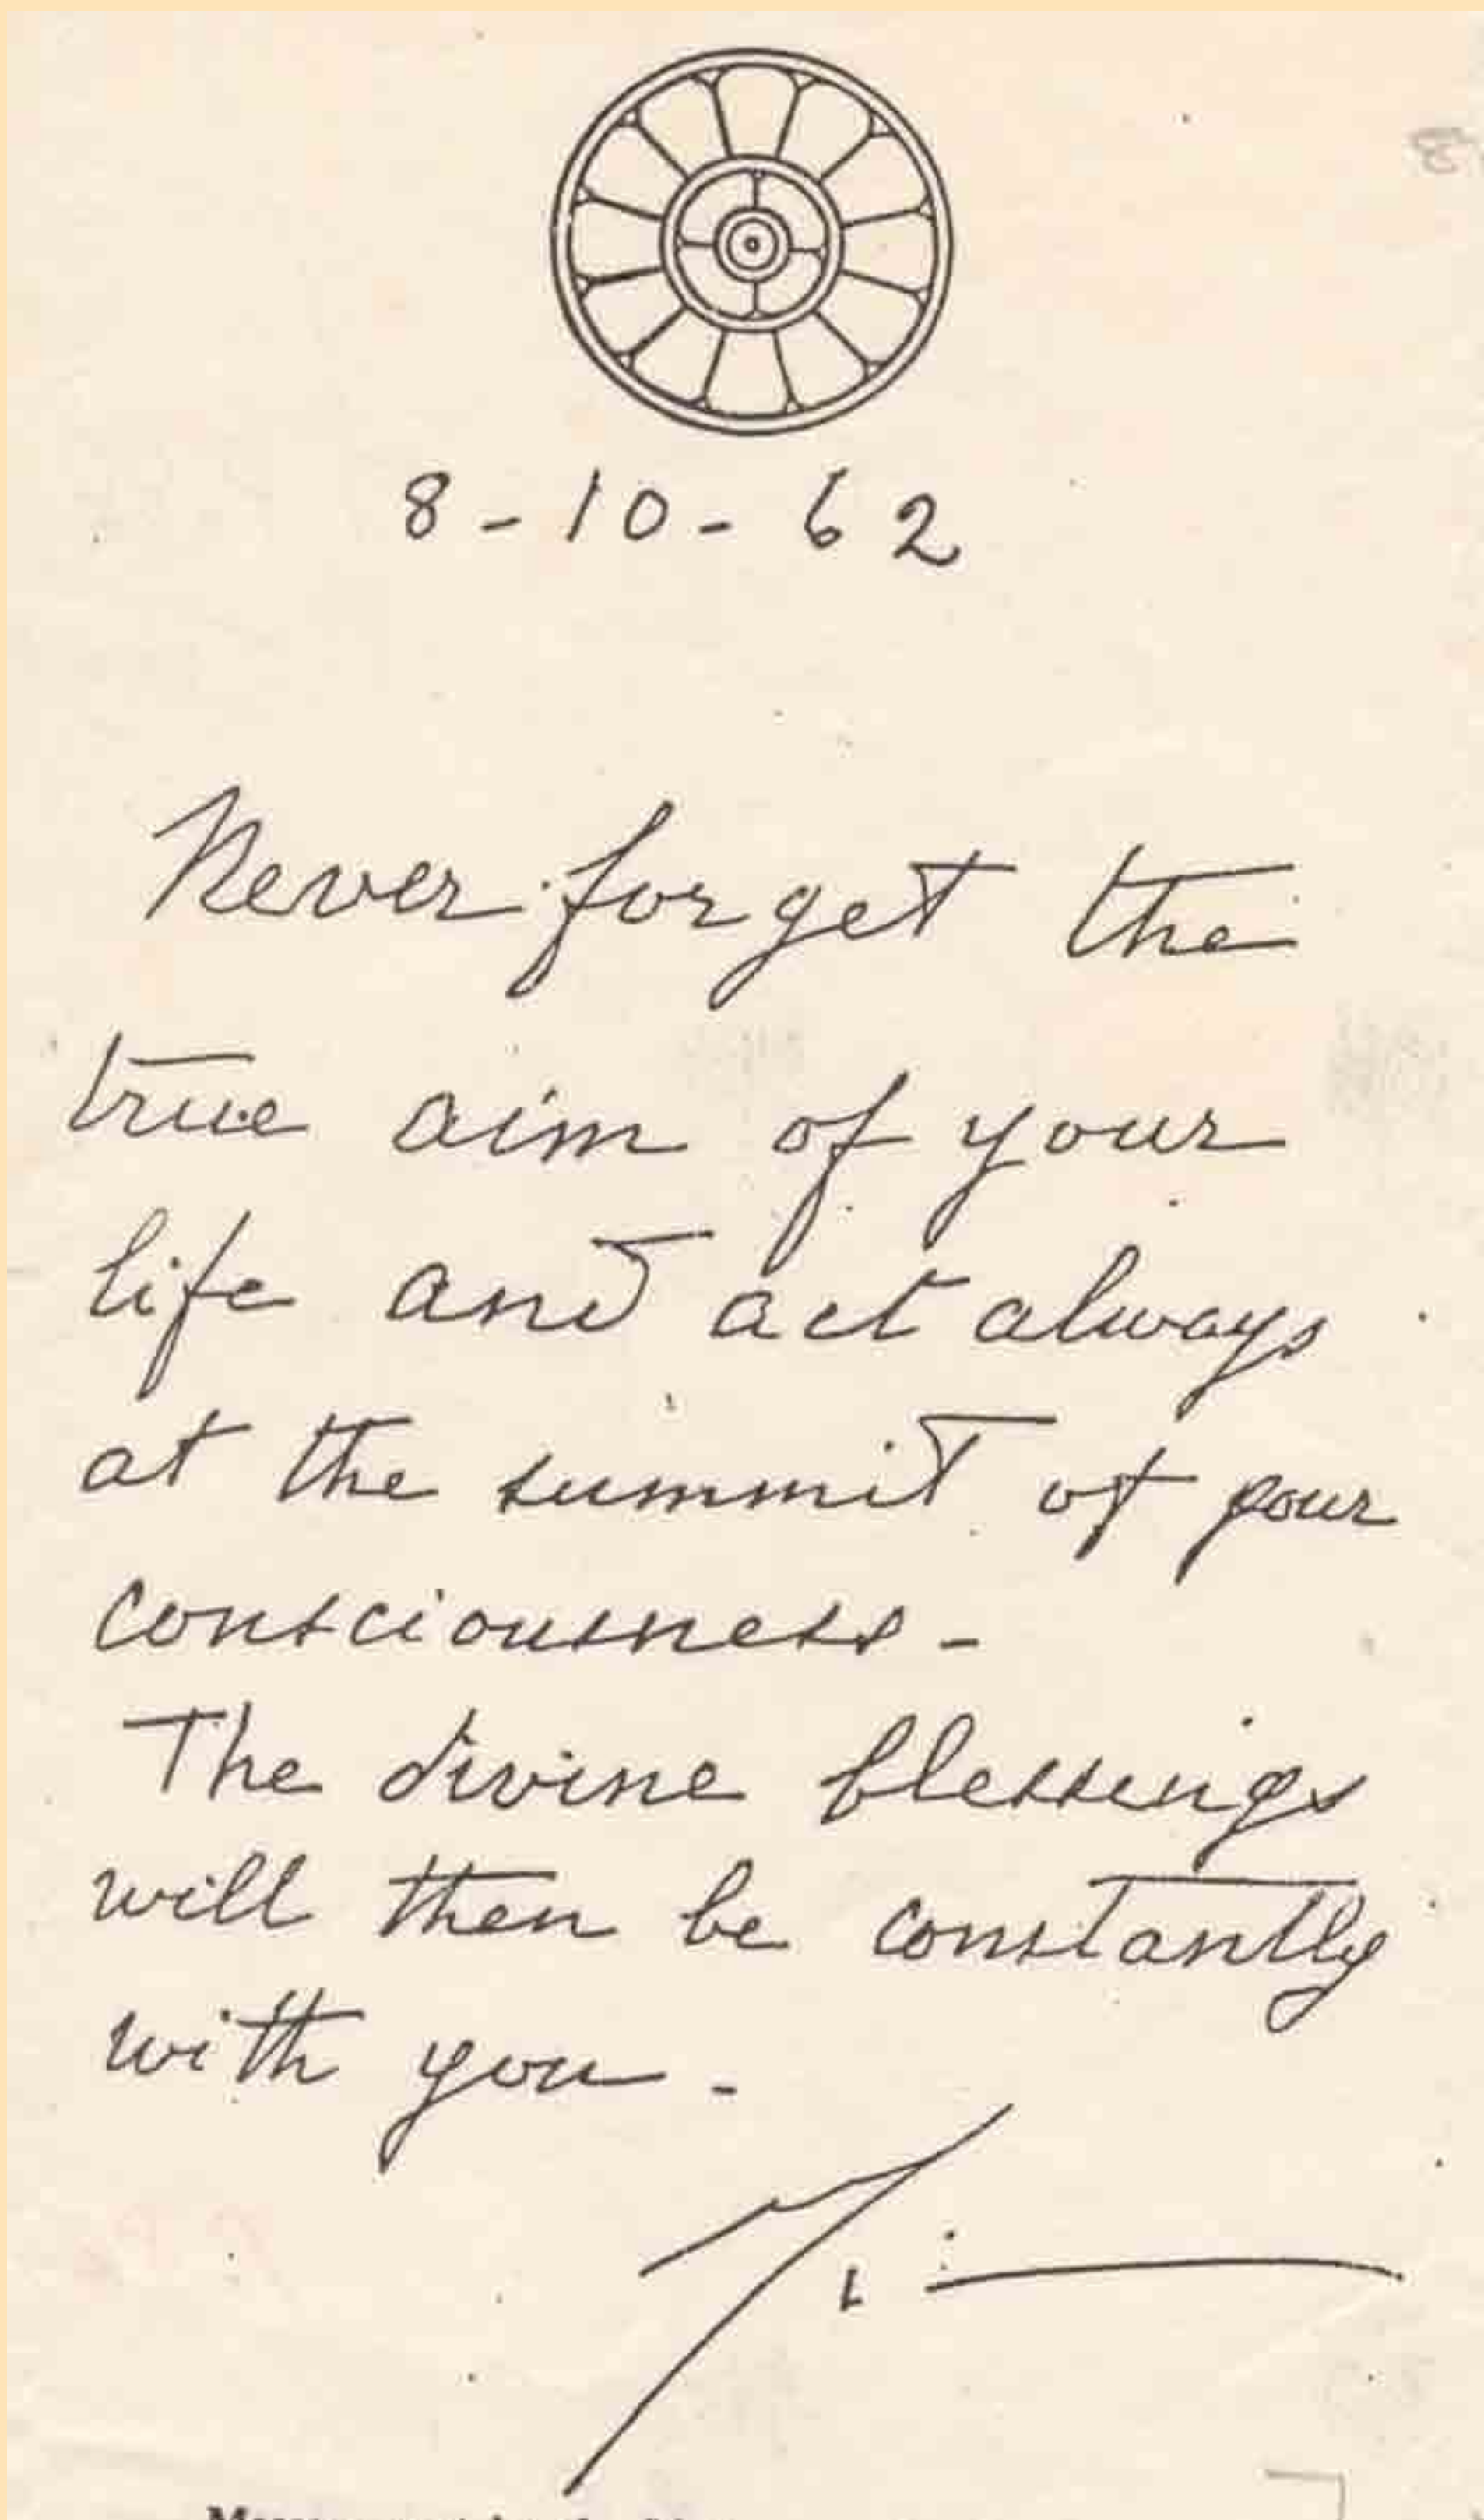 8-10-62
Never forget the
true aim of your
life and act always
at the summit of your
consciousness -
The divine blessings
will then be constantly
with you -